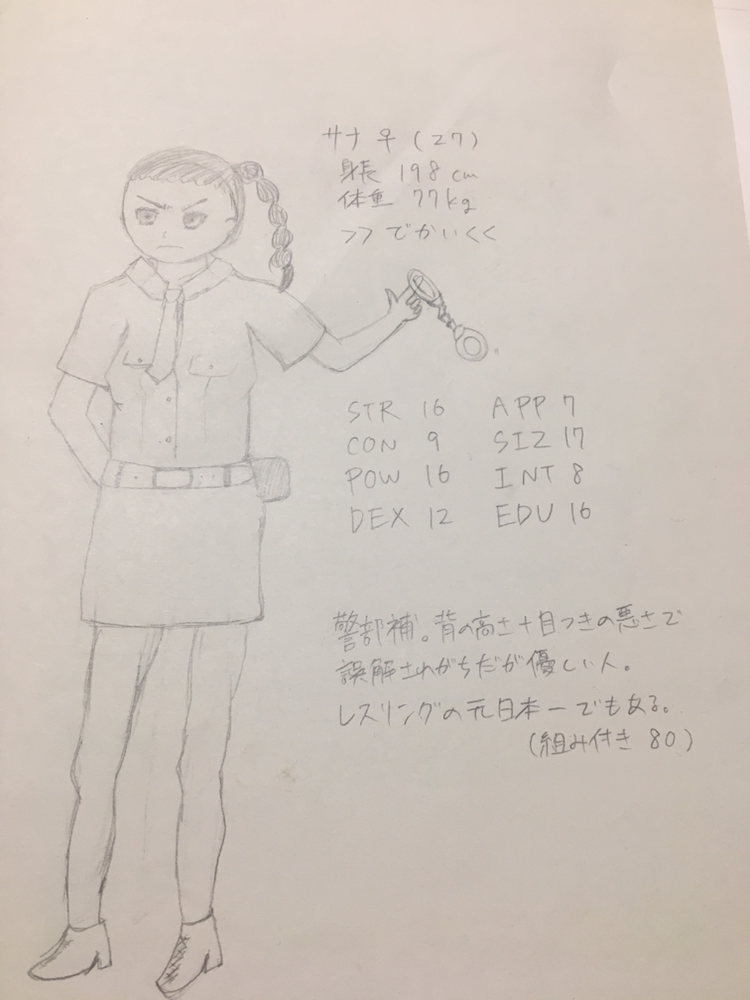 サナ ♀ (27)
身長 198cm
体重 77kg
>>でかい<<
STR 16 APP 7
CON 9 SIZ 17
POW 16 INT 8
DEX 12 EDU 16
警部補。背の高さ+目つきの悪さで
誤解されがちだが優しい人。
レスリングの元日本一でもある。
(組み付き 80)